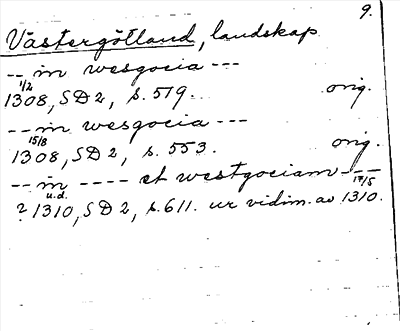 9.
Västergötland, landskap
-- in wesgocia ---
1/2
1308, SD 2, s. 519. orig.
-- in wesgocia ---
15/8
1308, SD 2, s. 553. orig.
-- in ---- et westgociam ---
u.d. 17/5
? 1310, SD 2, s. 611. ur vidim. av 1310.